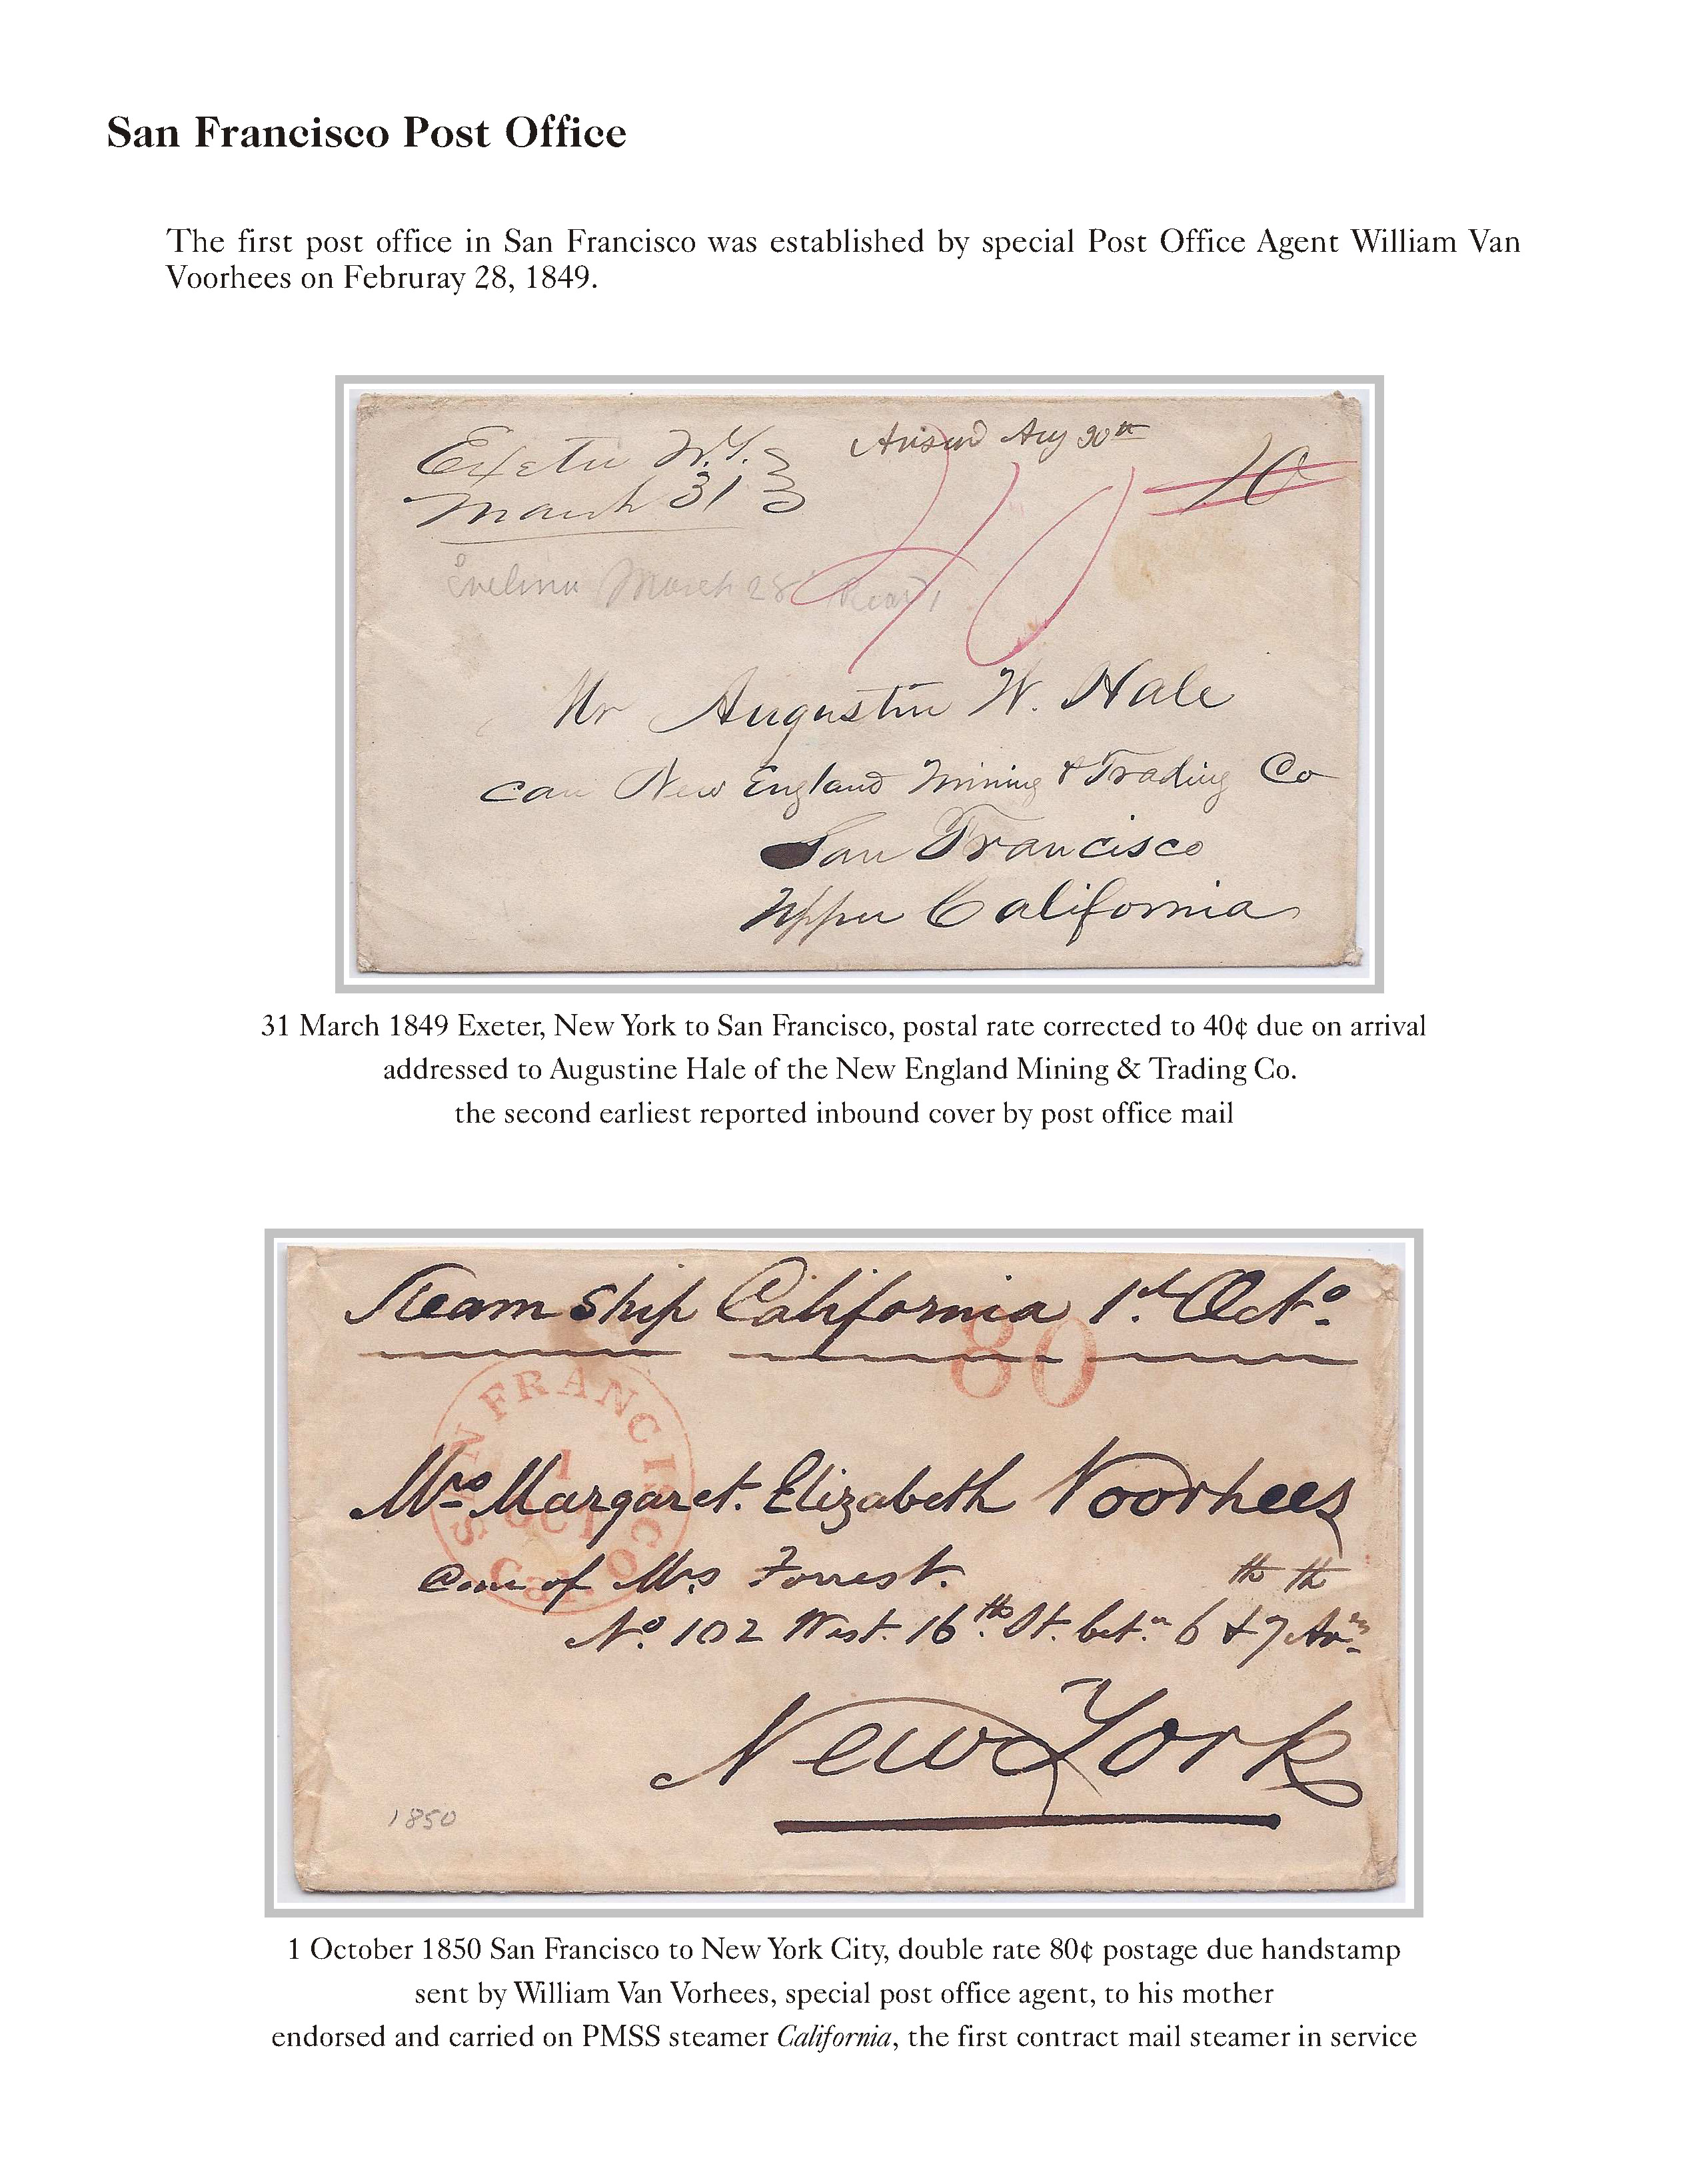 San Francisco Post Office
The first post office in San Francisco was established by special Post Office Agent William Van
Voorhees on Februray 28, 1849.
Exeter N.Y.
March 31
Aug 20th
10
40
Evelina March 28
Mr Augustin W. Hale
care New England Mining & Trading Co
San Francisco
Upper California
31 March 1849 Exeter, New York to San Francisco, postal rate corrected to 40¢ due on arrival
addressed to Augustine Hale of the New England Mining & Trading Co.
the second earliest reported inbound cover by post office mail
Steam Ship California 1st Octo.
80
SAN FRANCISCO
1
OCT
Cal.
Mrs Margaret. Elizabeth Voorhees
Care of Mrs Forrest.
No. 102 West. 16th. St. betn. 6th & 7th Avs
New York
1850
1 October 1850 San Francisco to New York City, double rate 80¢ postage due handstamp
sent by William Van Vorhees, special post office agent, to his mother
endorsed and carried on PMSS steamer California, the first contract mail steamer in service